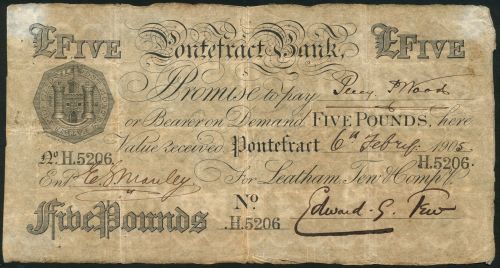 £FIVE Pontefract Bank, £FIVE
Promise to pay Percy P Wood
or Bearer on Demand FIVE POUNDS, here
Value received Pontefract 6th Febry. 1905
No. H.5206. H.5206.
Entd. For Leatham, Tew & Compy.
Five Pounds No. H.5206 Edward G. Tew